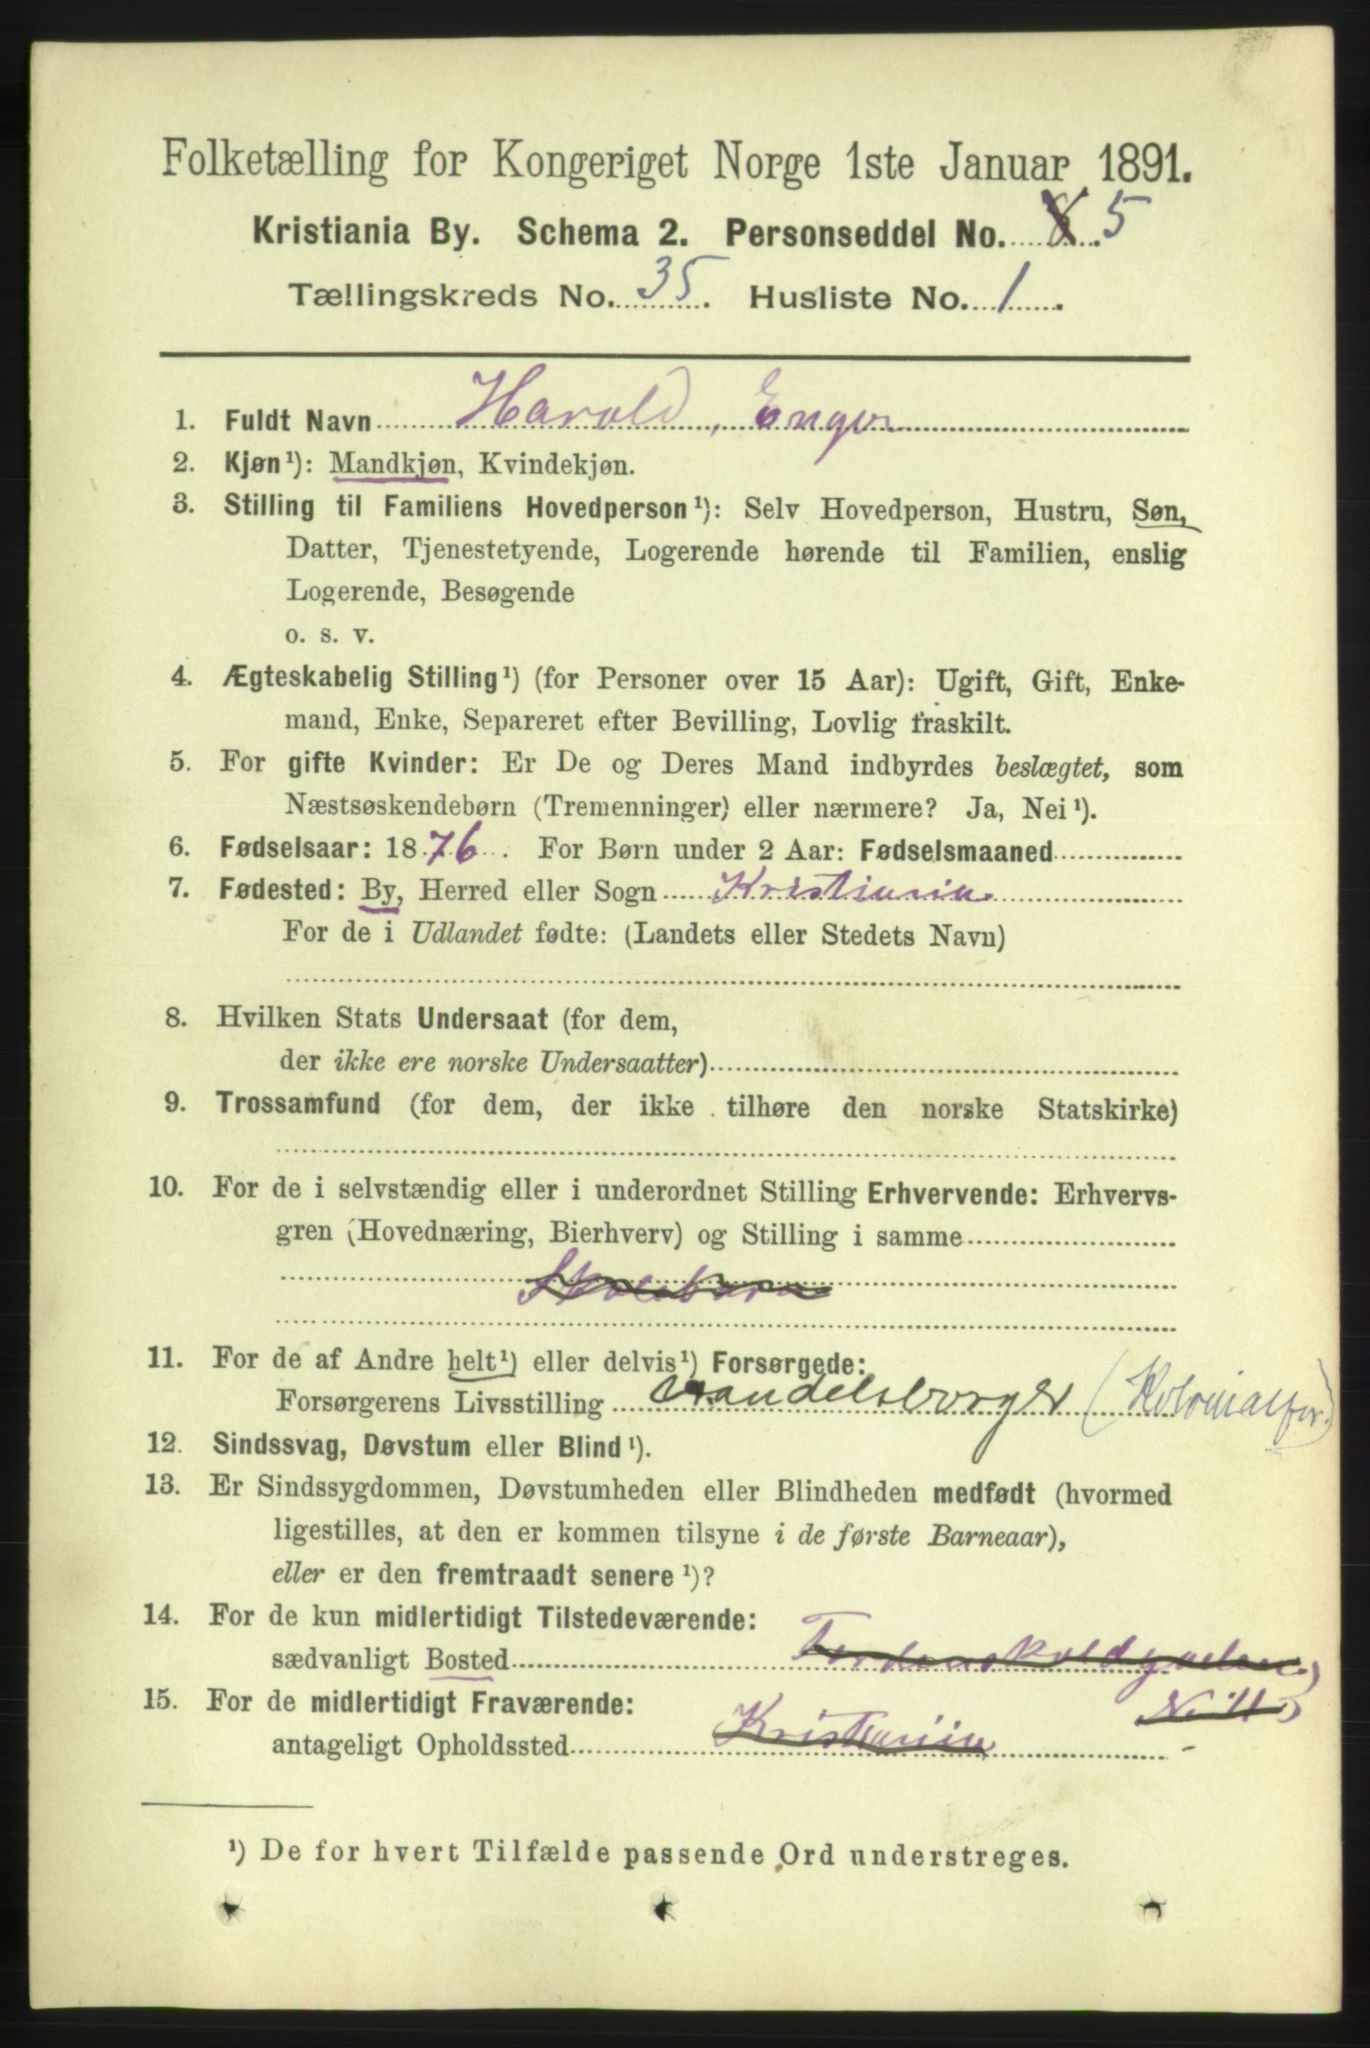 Folketælling for Kongeriget Norge 1ste Januar 1891.
Kristiania By. Schema 2. Personseddel No. 8 5
Tællingskreds No. 35. Husliste No. 1.
1. Fuldt Navn Harald, Enger
2. Kjøn¹): Mandkjøn, Kvindekjøn.
3. Stilling til Familiens Hovedperson¹): Selv Hovedperson, Hustru, Søn,
Datter, Tjenestetyende, Logerende hørende til Familien, enslig
Logerende, Besøgende
o. s. v.
4. Ægteskabelig Stilling¹) (for Personer over 15 Aar): Ugift, Gift, Enke-
mand, Enke, Separeret efter Bevilling, Lovlig fraskilt.
5. For gifte Kvinder: Er De og Deres Mand indbyrdes beslægtet, som
Næstsøskendebørn (Tremenninger) eller nærmere? Ja, Nei¹).
6. Fødselsaar: 1876. For Børn under 2 Aar: Fødselsmaaned
7. Fødested: By, Herred eller Sogn Kristiania
For de i Udlandet fødte: (Landets eller Stedets Navn)
8. Hvilken Stats Undersaat (for dem,
der ikke ere norske Undersaatter)
9. Trossamfund (for dem, der ikke tilhøre den norske Statskirke)
10. For de i selvstændig eller i underordnet Stilling Erhvervende: Erhvervs-
gren (Hovednæring, Bierhverv) og Stilling i samme
Skolebarn
11. For de af Andre helt¹) eller delvis¹) Forsørgede:
Forsørgerens Livsstilling Handelsborger (Kolonialfor.)
12. Sindssvag, Døvstum eller Blind¹).
13. Er Sindssygdommen, Døvstumheden eller Blindheden medfødt (hvormed
ligestilles, at den er kommen tilsyne i de første Barneaar),
eller er den fremtraadt senere¹)?
14. For de kun midlertidigt Tilstedeværende:
sædvanligt Bosted Tordenskoldgaden
15. For de midlertidigt Fraværende: No 11
antageligt Opholdssted Kristiania
¹) De for hvert Tilfælde passende Ord understreges.